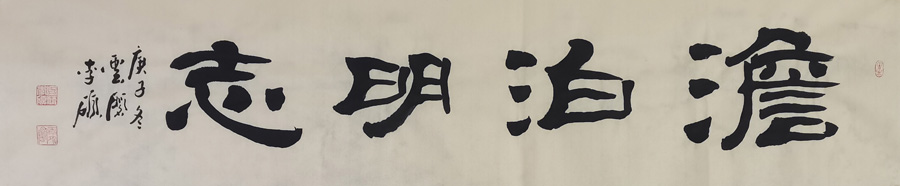 澹泊明志
庚子冬
雲
李